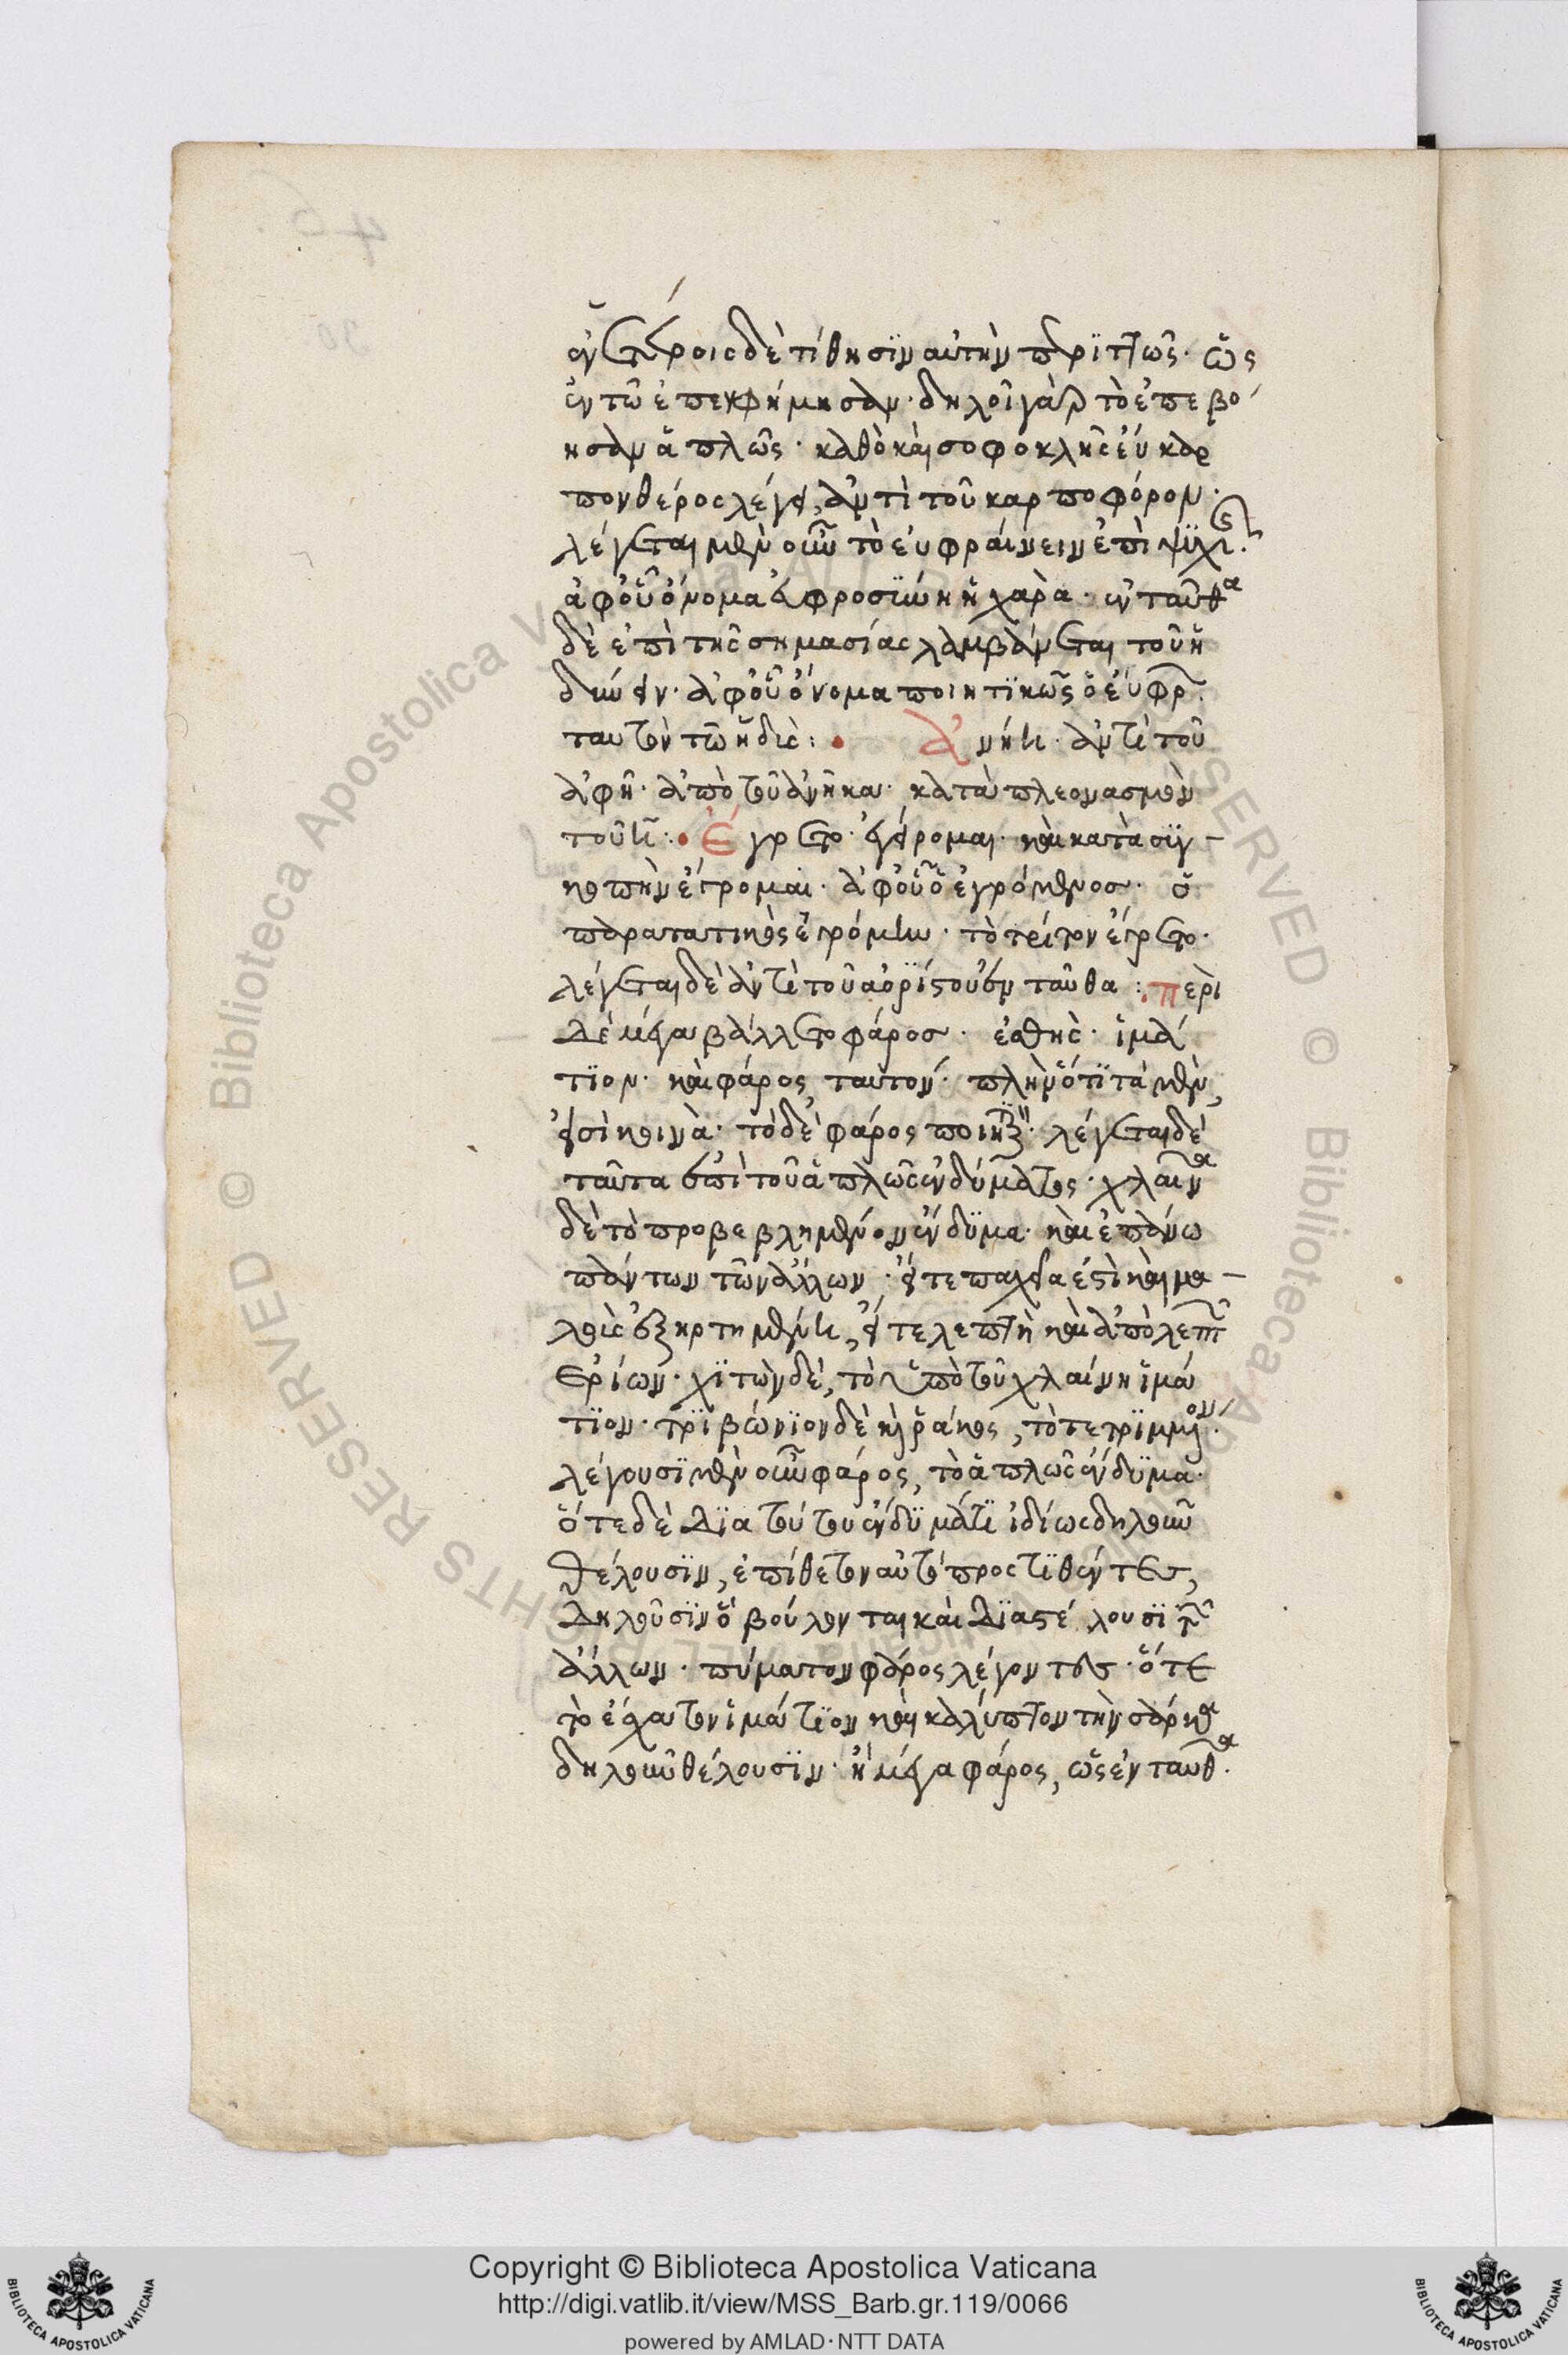 ἐν ἑτέροις δὲ τίθησϊν αὐτὴν περϊττῶς. ὡς
ἐν τῶ ἐπευφήμησαν. δηλοῖ γὰρ τὸ ἐπεβό
ησαν ἁπλῶς. καθὸ καὶ σοφοκλῆς ἐν καρ
πον θέρος λέγει, ἀντὶ τοῦ καρποφόρον.
λέγεται μὲν οὖν τὸ εὐφραίνειν ἐπὶ
ἀφ' οὗ ὄνομα εὐφροσϊύνη ἡ χαρὰ. ἐνταῦθα
δὲ ἐπὶ τῆς σημασίας λαμβάνεται τοῦ ἡ
δύνειν. ἀφ' οὗ ὄνομα ποιητϊκῶς ὁ εὐφρ.
ταυτὸν τῶ ἡδὺς: ἀνῆκε. ἀντὶ τοῦ
ἀφῆ. ἀπὸ τοῦ ἀνῆκα. κατὰ πλεονασμὸν
τοῦ κ: Ἔγρετο. ἐγείρομαι. καὶ κατὰ σϋγ
κοπὴν ἔγρομαι. ἀφ' οὗ ὁ ἐγρόμενος. ὁ
παρατατικὸς ἐγρόμην. τὸ τρίτον ἔγρετο.
λέγεται δὲ ἀντὶ τοῦ ἀορίστου ἐνταῦθα: περὶ
δὲ μέγα βάλλετο φάρος. ἐσθὴς. ἱμά
τϊον. καὶ φάρος ταυτόν. πλὴν ὅτϊ τὰ μὲν,
εἰσὶ κοινὰ. τὸ δὲ φάρος ποιητϊκ. λέγεται δὲ
ταῦτα ἐπὶ τοῦ ἁπλῶς ἐνδύματος. χλαῖνα
δὲ τὸ προβεβλημένον ἔνδϋμα. καὶ ἐπάνω
πάντων τῶν ἄλλων. εἴτε παχεῖα ἐστὶ καὶ μα
λοῖς ἐξηρτημένη, εἴτε λεπτὴ καὶ ἀπὸ λεπτ
ἐρίων. χϊτὼν δὲ, τὸ ὑπὸ τοῦ χλαίνη ἱμά
τϊον. τρϊβώνϊον δὲ καὶ ῥάκος, τὸ τετρϊμμένον.
λέγουσϊ μὲν οὖν φάρος, τὸ ἁπλῶς ἔνδϋμα.
ὅτε δὲ δϊὰ τούτου ἐνδϋμάτϊ ἰδίως δηλοῦν
θέλουσϊν, ἐπίθετον αὐτῶ προςτϊθέντες,
δηλοῦσϊν ὃ βούλονται καὶ δϊαστέλουσϊ τῶν
ἄλλων. πύματον φάρος λέγοντες. ὅτε
τὸ ἔσχατον ἱμάτϊον καὶ καλύπτον τὴν σάρκα
δηλοῦν θέλουσϊν. ἢ μέγα φάρος, ὡς ἐνταῦθα.
Copyright © Biblioteca Apostolica Vaticana
http://digi.vatlib.it/view/MSS_Barb.gr.119/0066
powered by AMLAD · NTT DATA